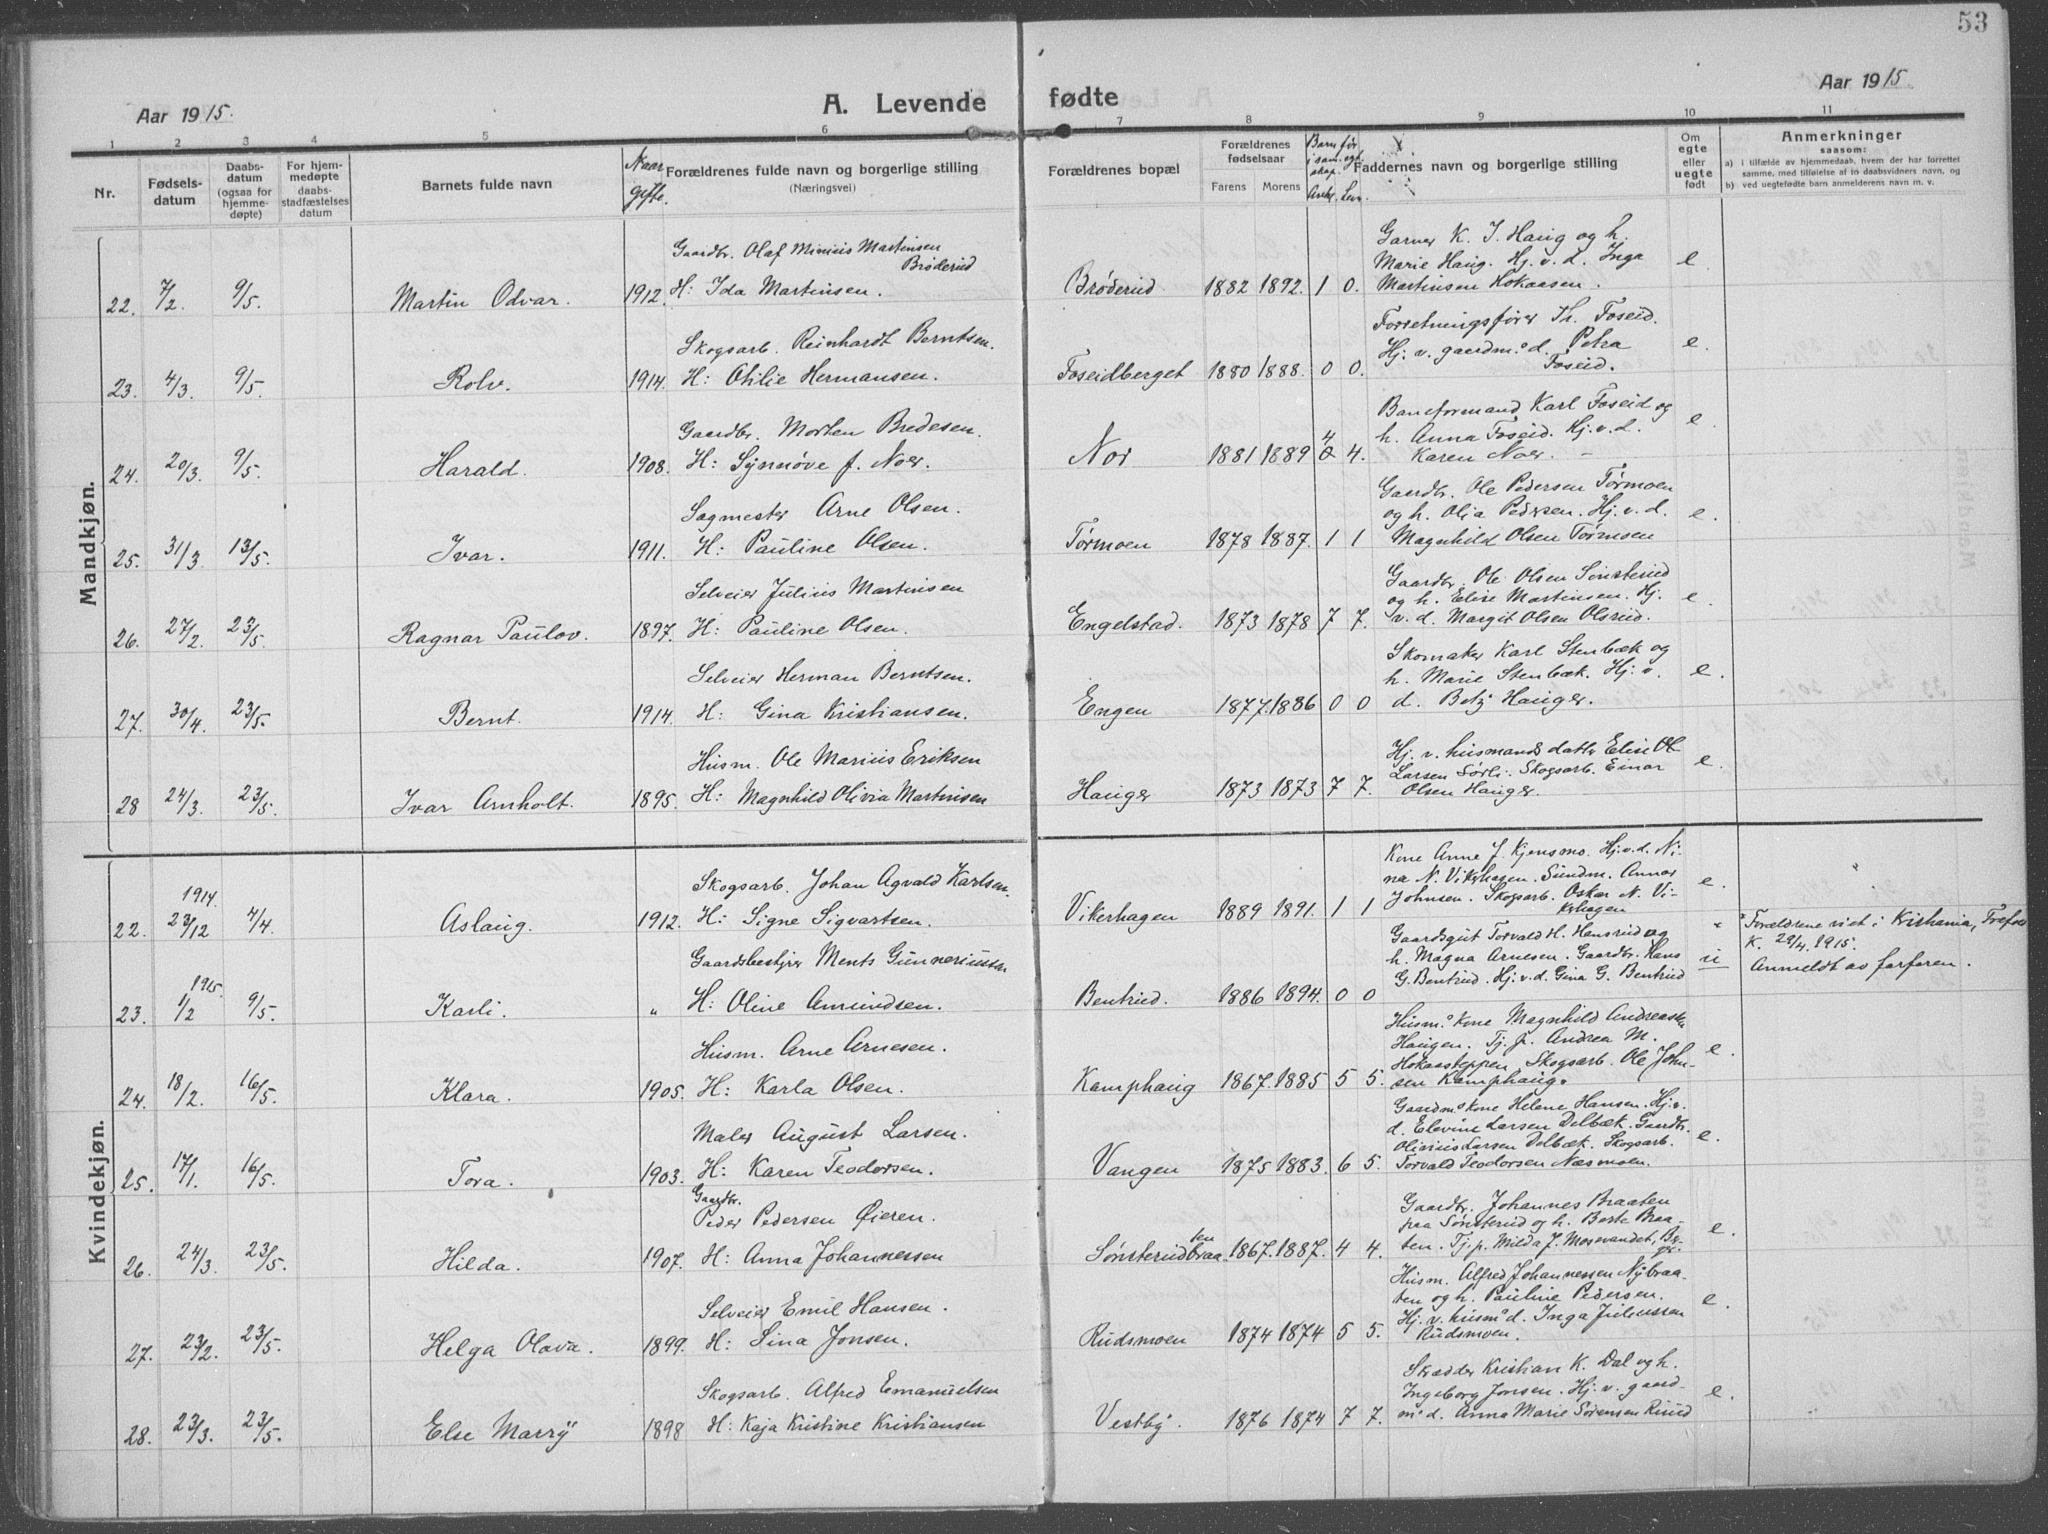 53
Aar 1915.
A. Levende fødte
Aar 1915.
1 2 3 4 5 6 7 8 9 10 11
Nr.
Fødsels-
datum
Daabs-
datum
(ogsaa for
hjemme-
døpte)
For hjem-
medøpte
daabs-
stadfæstelses
datum
Barnets fulde navn
Naar
gifte.
Forældrenes fulde navn og borgerlige stilling
(Næringsvei)
Forældrenes bopæl
Forældrenes
fødselsaar
Farens Morens
Barn før
i sam. egt.
skap.
Antal. Lev.
Faddernes navn og borgerlige stilling
Om
egte
eller
uegte
født
Anmerkninger
saasom:
a) i tilfælde av hjemmedaab, hvem der har forrettet
samme, med tilføielse af to daabsvidners navn, og
b) ved uegtefødte barn anmelderens navn m. v.
Mandkjøn.
Gaardbr. Olaf Minius Martinsen
Brøderud
22. 7/2 9/5 Martin Odvar. 1912. H: Ida Martinsen. Brøderud. 1882 1892. 1 0.
Garver K. J. Haug og h.
Marie Haug. Hj. v. d. Inga e.
Martinsen Kokaasen.
Skogsarb. Reinhardt Berntsen.
23. 4/3 9/5. Rolv. 1914. H: Otilie Hermansen. Foseidberget 1880 1888. 0 0.
Forretningsfører Th. Foseid.
Hj. v. gaardm.s d. Petra e.
Foseid.
Gaardbr. Morten Bredesen.
24. 20/3. 9/5. Harald. 1908. H: Synnøve f. Noer. Nor 1881 1889 4 4.
Baneformand Karl Foseid og
h. Anna Foseid. Hj. v. d. e.
Karen Noer. –
Sagmester Arne Olsen.
25. 31/3 13/5. Ivar. 1911. H: Pauline Olsen. Tørmoen 1878 1887. 1 1
Gaardbr. Ole Pedersen Tørmoen
og h. Olia Pedersen. Hj. v. d. e.
Magnhild Olsen Tørmoen
Selveier Julius Martinsen
26. 27/2. 23/5. Ragnar Paulov. 1897. H: Pauline Olsen. Engelstad. 1873 1878 7 7.
Gaardbr. Ole Olsen Sønsterud
og h. Elise Martinsen. Hj. e.
v. d. Margit Olsen Olsrud.
Selveier Herman Berntsen.
27. 30/4. 23/5. Bernt. 1914. H: Gina Kristiansen. Engen 1877. 1886 0 0
Skomaker Karl Stenbæk og
h. Marie Stenbæk. Hj. v. e.
d. Betzy Hauger.
Husm. Ole Marius Eriksen
28 24/3. 23/5. Ivar Arnholt. 1895. H: Magnhild Olivia Martinsen Hauger 1873 1873 7 7.
Hj. v. husmands datter Elise
Larsen Sørli. Skogsarb. Einar e.
Olsen Hauger.
Kvindekjøn.
Skogsarb. Johan Agvald Karlsen.
1914.
22. 23/12 4/4. Aslaug. 1912. H: Signe Sigvartsen. Vikerhagen 1889 1891. 1 1
Kone Anne J. Kjensmo. Hj. v. d. Ni-
na N. Vikerhagen. Sundm. Anner e.
Johnsen. Skogsarb. Oskar N. Vi-
kerhagen
Gaardsbestyrer Ments Gunneriusen
1915.
23. 1/2 9/5. Karli. " H: Oline Amundsen. Bentrud. 1886 1894. 0 0
Gaardsgut Torvald H. Hansrud og
h. Magna Arnesen. Gaardbr. Hans u
G. Bentrud. Hj. v. d. Gina G. Bentrud
Forældrene viet i Kristiania,
K. 29/4. 1915.
Anmeldt av farfaren.
Husm. Arne Arnesen.
24. 18/2. 16/5. Klara. 1905. H: Karla Olsen. Kamphaug 1867. 1885 5 5.
Husm.s kone Magnhild Andreasen
Haugen. Tj. p. Andrea M. e.
Hokaasteppen. Skogsarb. Ole John-
sen Kamphaug.
Maler August Larsen.
25. 17/1. 16/5. Tora. 1903. H: Karen Teodorsen. Vangen 1875 1883. 6 5.
Gaardm.s kone Helene Hansen. Hj. v.
d. Elevine Larsen Delbæk. Gaardbr. e.
Olivius Larsen Delbæk. Skogsarb.
Torvald Teodorsen Næsmoen.
Gaardbr.
Peder Pedersen Øieren.
26. 24/3. 23/5. Hilda. 1907. H: Anna Johannessen Sønsterudbraaten 1867. 1887. 4 4.
Gaardbr. Johannes Braaten
paa Sønsterud og h. Berte Braa- e.
ten. Tj. p. Milda J. Mosevandet,
Selveier Emil Hansen.
27. 23/2. 23/5. Helga Olava. 1899. H: Lina Jonsen. Rudsmoen 1874 1874 5 5.
Husm. Alfred Johannessen Nybraa-
ten og h. Pauline Pedersen. e.
Hj. v. husm.s d. Inga Juliussen
Rudsmoen.
Skogsarb. Alfred Emanuelsen
28. 23/3. 23/5. Else Marry 1898 H: Kaja Kristine Kristiansen Vestby. 1876 1874 7 7.
Skrædder Kristian K. Dal og h.
Ingeborg Jonsen. Hj. v. gaard- e.
m.s d. Anna Marie Sørensen Risud